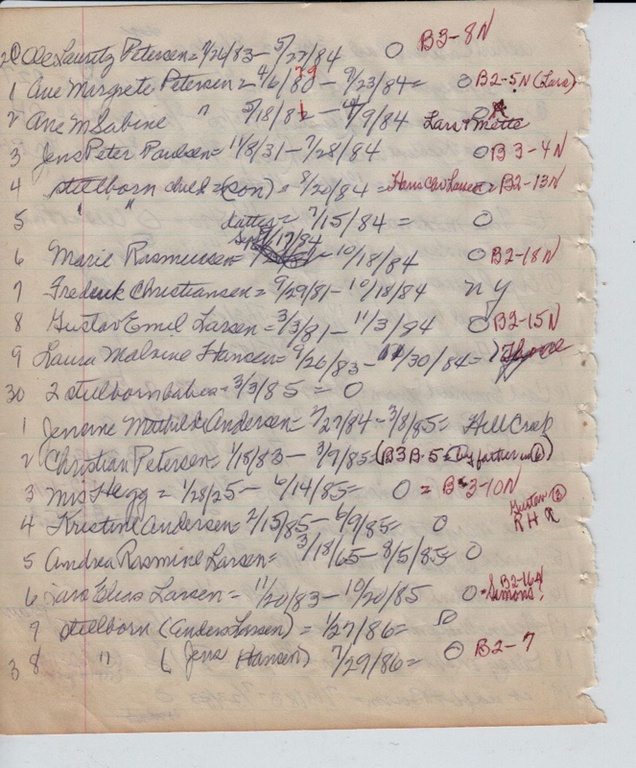 20 Ole Lauritz Petersen = 7/26/83 - 5/27/84 O B3-8N
1 Ane Margrete Petersen = 4/6/80 79 - 9/23/84 = O B2-5N (Lars)
2 Ane M Sabine " 5/18/82 1 - 4/9/84 Lars + Mette
3 Jens Peter Paulsen = 11/8/31 - 7/28/84 O B3-4N
4 stillborn child = (son) = 8/20/84 = Hans Chr Larsen = B2-13N
5 " " datter = 7/15/84 = O
Sept 17/84
6 Marie Rasmussen = - 10/18/84 O B2-18N
7 Fredrik Christiansen = 9/29/81 - 10/18/84 n y
8 Gustav Emil Larsen = 3/3/81 - 11/3/84 O B2-15N
9 Laura Malvine Hansen = 9/26/83 - 11/30/84 =
30 2 stillborn babies = 3/3/85 = O
1 Andersen = 7/27/84 - 3/8/85 = Hill Crop
2 Christian Petersen = 1/18/83 - 3/7/85 = (B3B-5 = by father in 6)
3 Mrs Hegg = 1/28/25 - 6/14/85 = O = B3-10N
Gustav
4 Kristine Andersen = 2/15/85 - 6/9/85 = O R H R
5 Andrea Rasmine Larsen = 3/18/65 - 8/5/85 = O
6 Lars Elias Larsen = 11/20/83 - 10/20/85 O B2-164 Simons!
7 stillborn (Anders Larsen) = 1/27/86 = O
38 " ( Jens Hansen) 7/29/86 = O B2-7